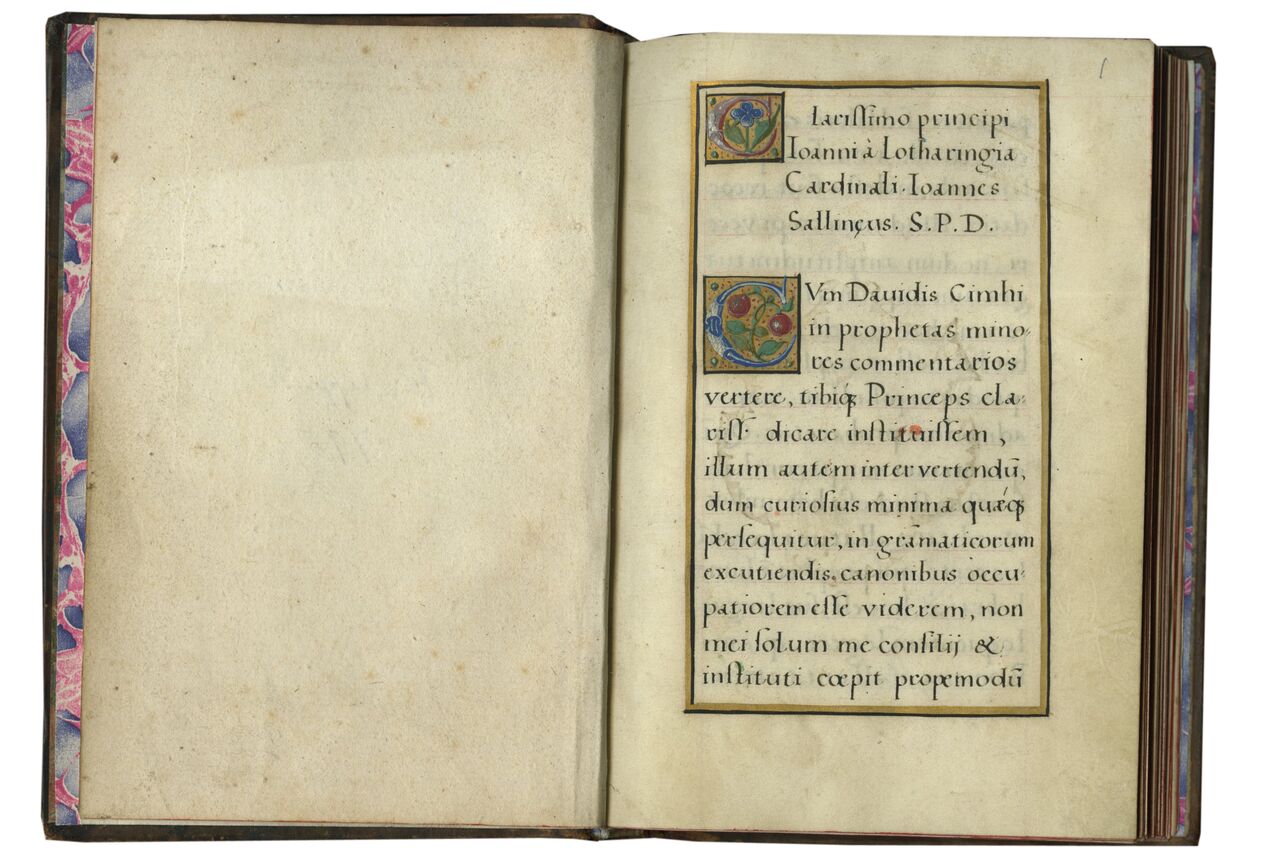 1
Clarissimo principi
Ioanni à Lotharingia
Cardinali. Ioannes
Sallinçus. S. P. D.
CVm Dauidis Cimhi
in prophetas mino-
res commentarios
vertere, tibiq́; Princeps cla-
riss. dicare instituissem,
illum autem inter vertendū,
dum curiosius minima quæq́;
persequitur, in grāmaticorum
excutiendis canonibus occu-
patiorem esse viderem, non
mei solum me consilij &
instituti cœpit propemodū